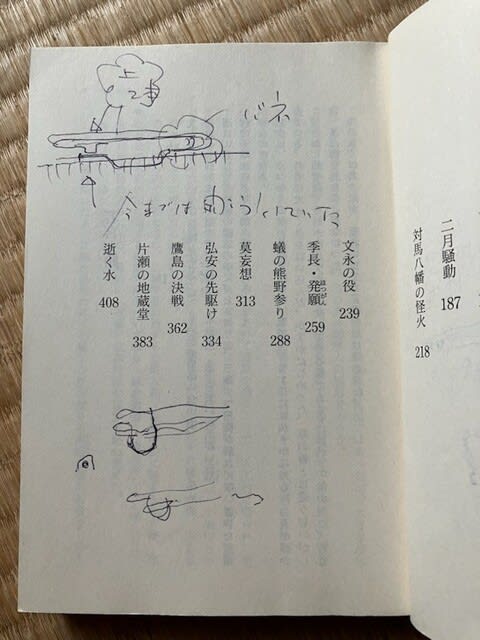 二月騒動 187
対馬八幡の怪火 218
文永の役 239
季長・発願 259
蟻の熊野参り 288
莫妄想 313
弘安の先駆け 334
鷹島の決戦 362
片瀬の地蔵堂 383
逝く水 408
上
工事
バネ
今までは